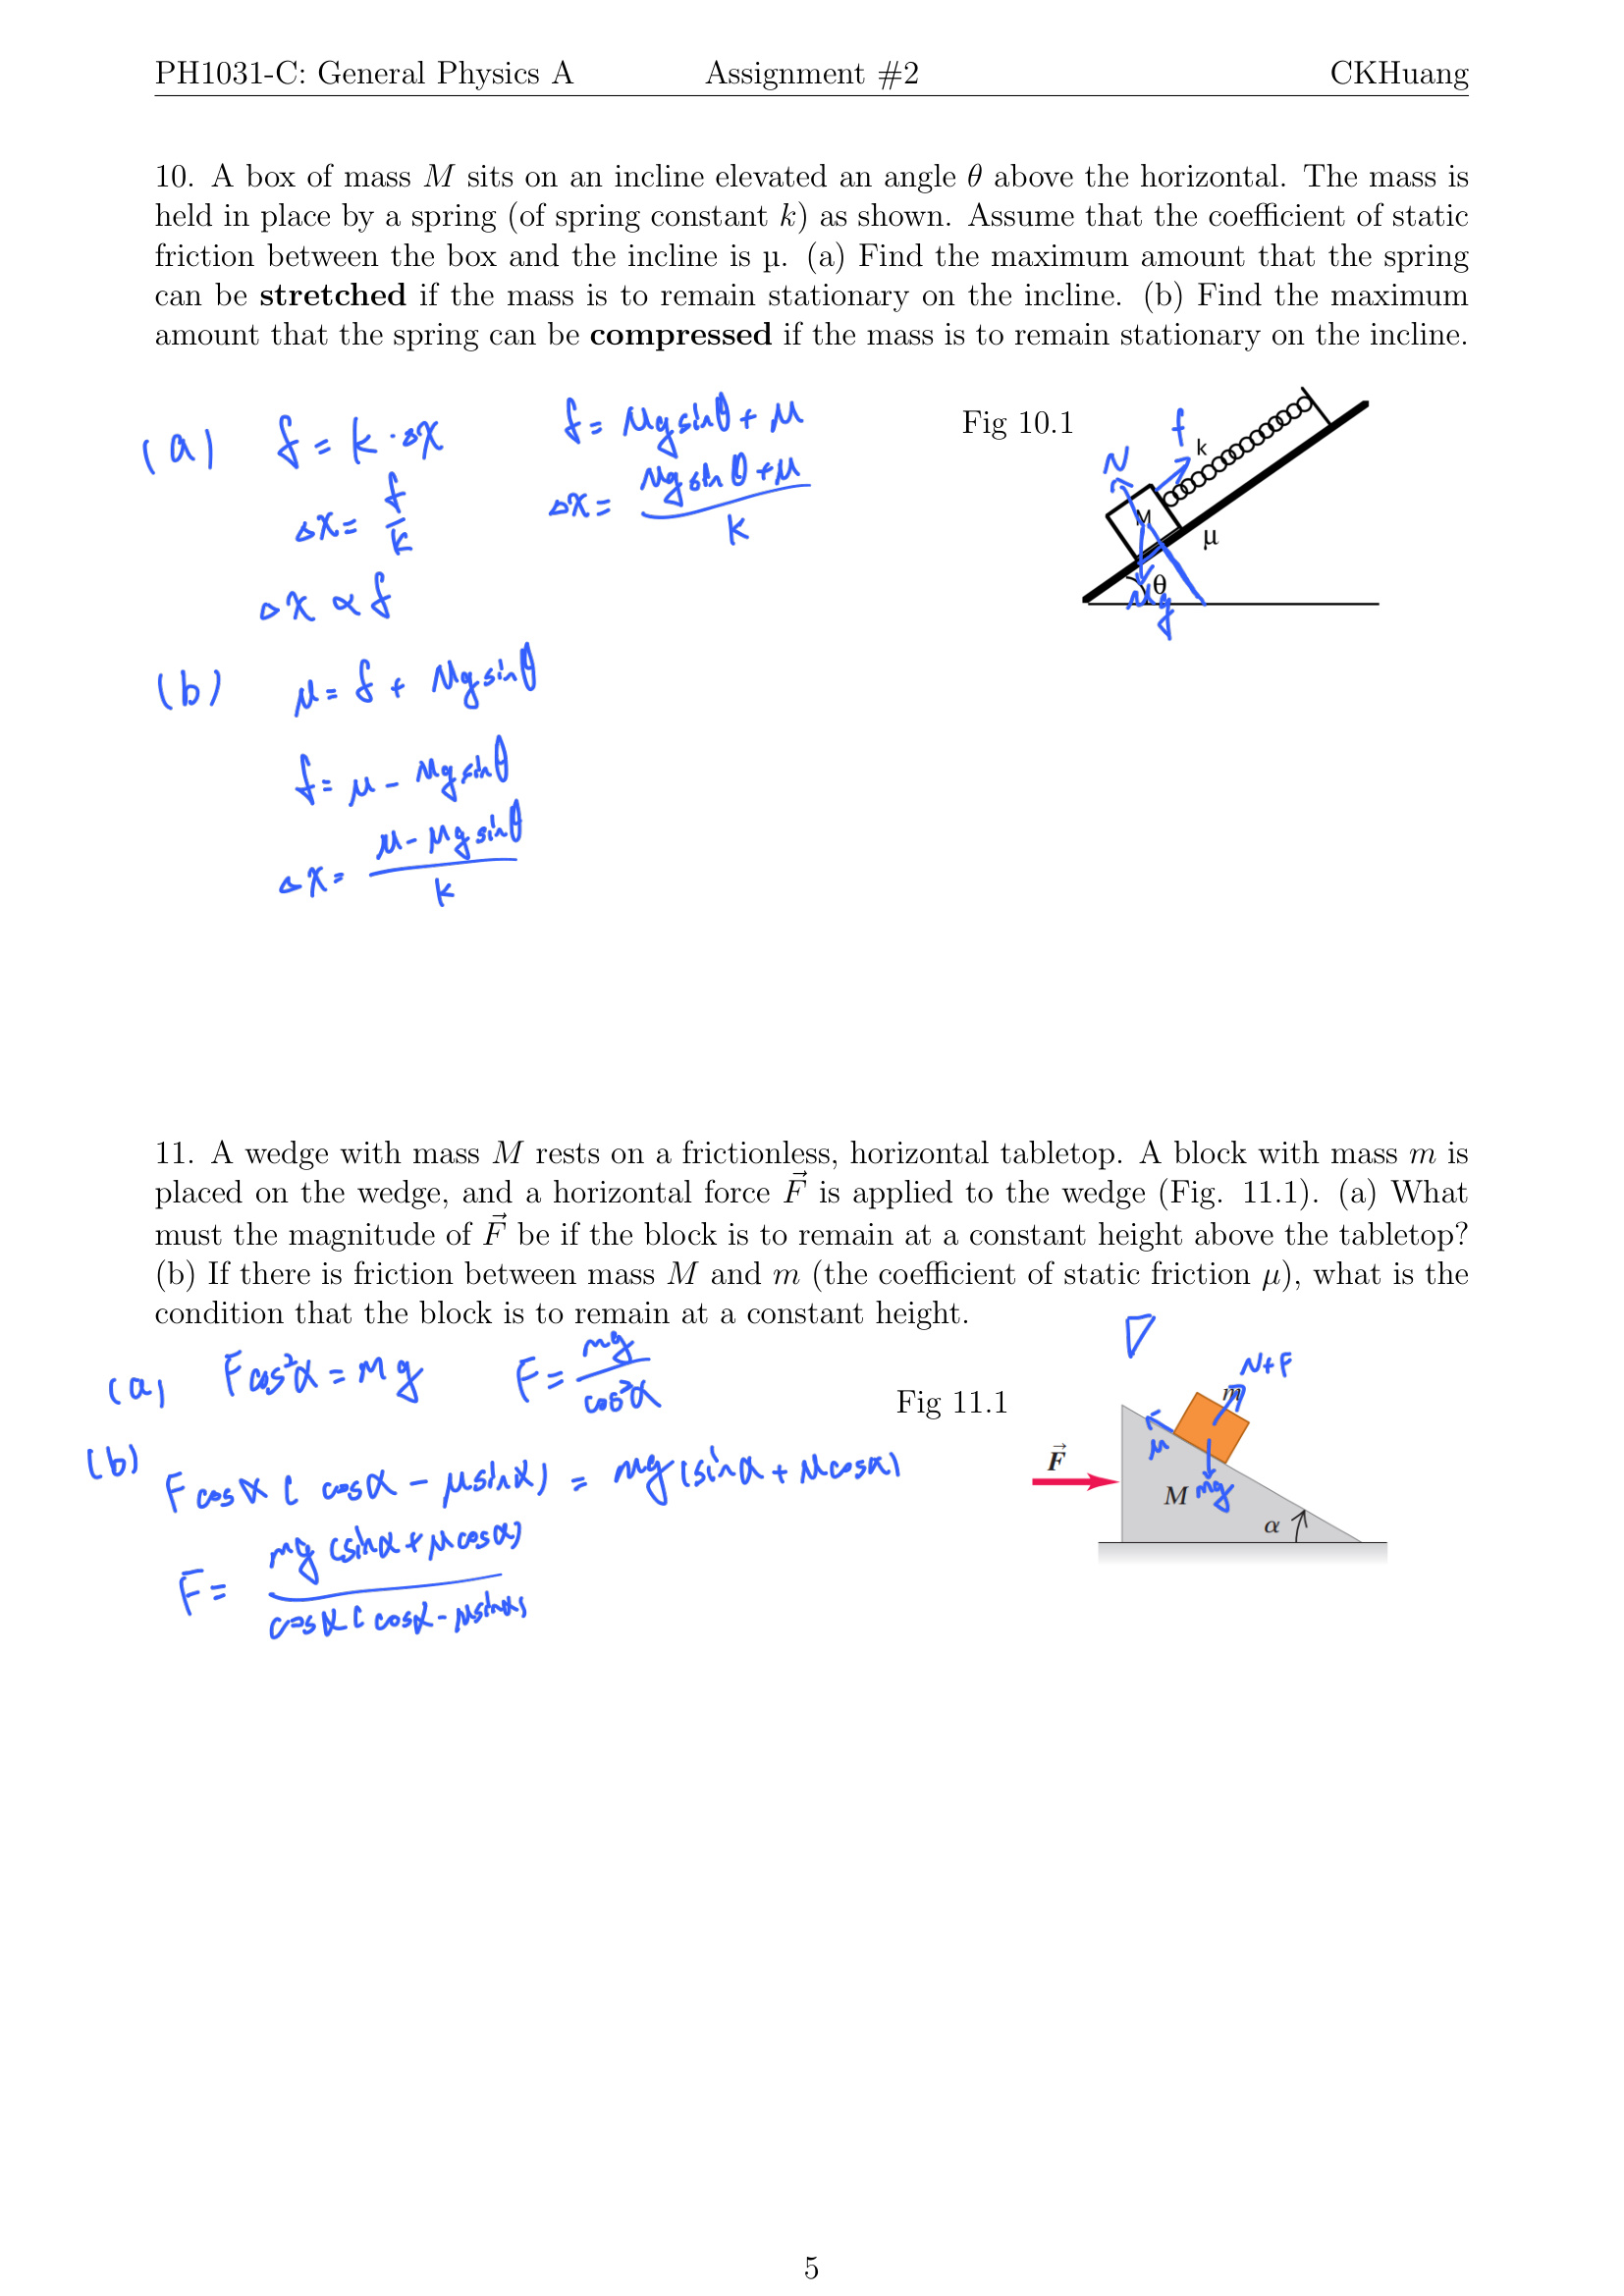 PH1031-C: General Physics A Assignment #2 CKHuang
10. A box of mass M sits on an incline elevated an angle θ above the horizontal. The mass is
held in place by a spring (of spring constant k) as shown. Assume that the coefficient of static
friction between the box and the incline is μ. (a) Find the maximum amount that the spring
can be stretched if the mass is to remain stationary on the incline. (b) Find the maximum
amount that the spring can be compressed if the mass is to remain stationary on the incline.
(a) f = k · Δx
Δx = f/k
Δx ∝ f
f = Mg sinθ + μ
Δx = (Mg sinθ + μ)/k
Fig 10.1
N
f
k
M
μ
θ
Mg
(b) μ = f + Mg sinθ
f = μ - Mg sinθ
Δx = (μ - Mg sinθ)/k
11. A wedge with mass M rests on a frictionless, horizontal tabletop. A block with mass m is
placed on the wedge, and a horizontal force F⃗ is applied to the wedge (Fig. 11.1). (a) What
must the magnitude of F⃗ be if the block is to remain at a constant height above the tabletop?
(b) If there is friction between mass M and m (the coefficient of static friction μ), what is the
condition that the block is to remain at a constant height.
(a) F cos²α = mg F = mg/cos²α
Fig 11.1
N+F
m
μ
F⃗
M
mg
α
(b) F cosα ( cosα - μ sinα ) = mg (sinα + μ cosα)
F = mg (sinα + μ cosα)/cosα ( cosα - μ sinα)
5